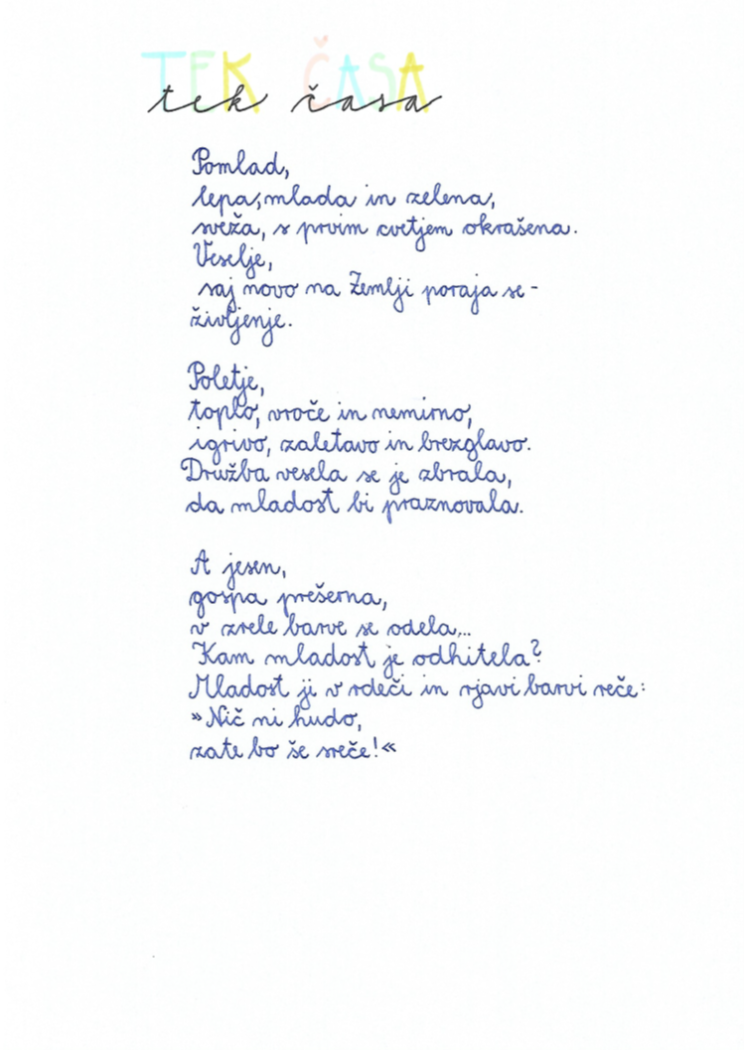 TEK ČASA
tek časa
Pomlad,
lepa, mlada in zelena,
sveža, s prvim cvetjem okrašena.
Veselje,
saj novo na Zemlji poraja se -
življenje.
Poletje,
toplo, vroče in nemirno,
igrivo, zaletavo in brezglavo.
Družba vesela se je zbrala,
da mladost bi praznovala.
A jesen,
gospa prešerna,
v zrele barve se odela...
Kam mladost je odhitela?
Mladost ji v rdeči in rjavi barvi reče:
»Nič ni hudo,
zate bo še sreče!«